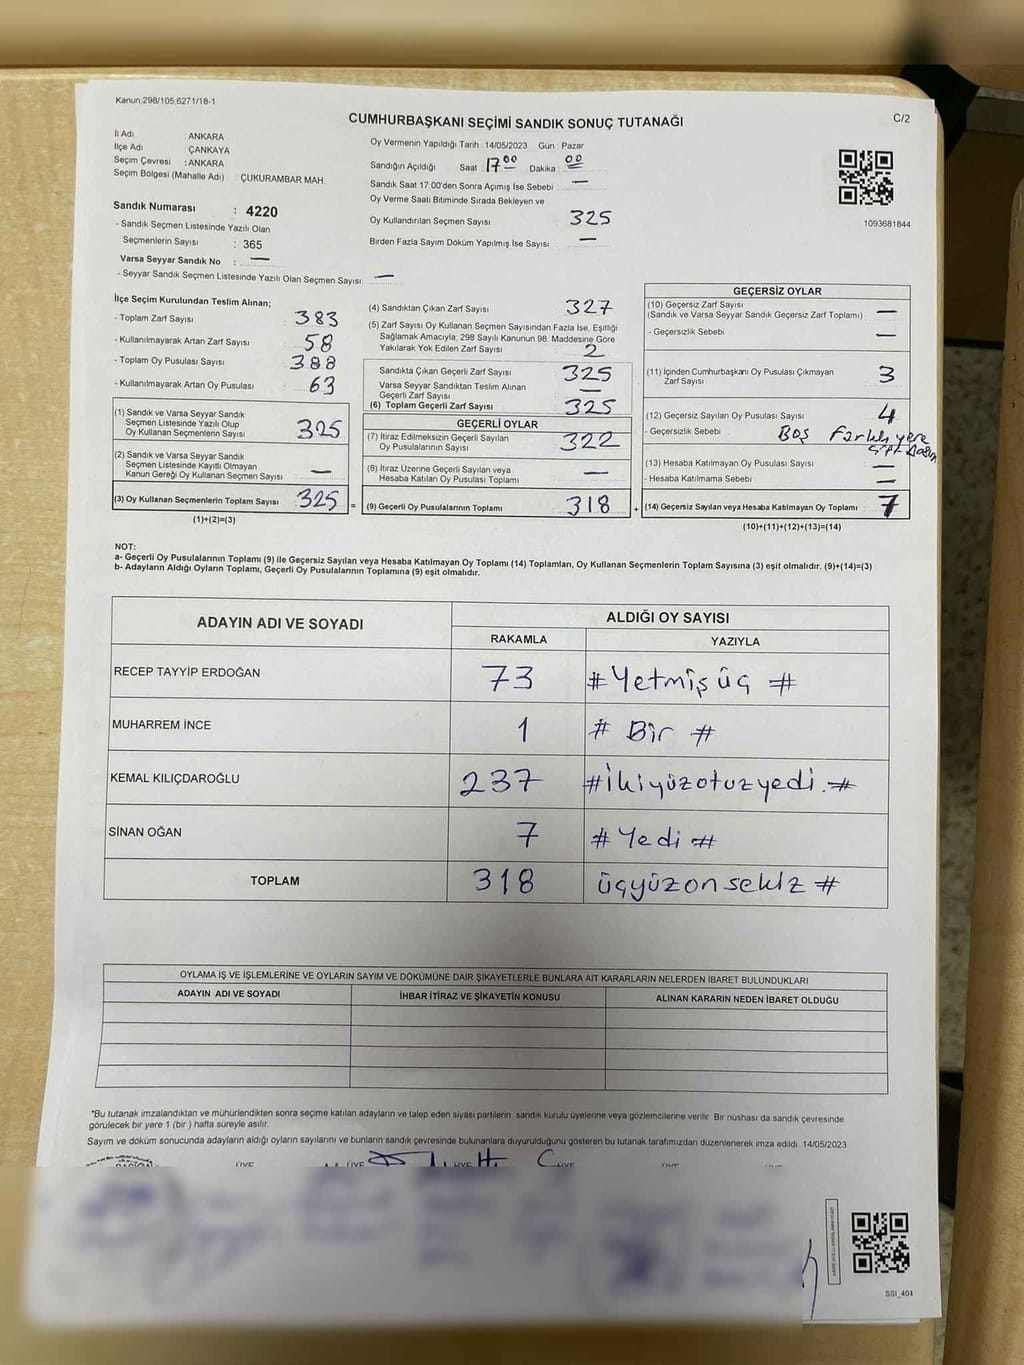 Kanun.298/105,6271/18-1
CUMHURBAŞKANI SEÇİMİ SANDIK SONUÇ TUTANAĞI
C/2
İl Adı ANKARA
İlçe Adı ÇANKAYA
Seçim Çevresi : ANKARA
Seçim Bölgesi (Mahalle Adı) ÇUKURAMBAR MAH.
Sandık Numarası : 4220
- Sandık Seçmen Listesinde Yazılı Olan
Seçmenlerin Sayısı : 365
Varsa Seyyar Sandık No : —
- Seyyar Sandık Seçmen Listesinde Yazılı Olan Seçmen Sayısı —
Oy Vermenin Yapıldığı Tarih 14/05/2023 Gün Pazar
Sandığın Açıldığı Saat 17 00 Dakika 00
Sandık Saat 17.00'den Sonra Açımış İse Sebebi —
Oy Verme Saati Bitiminde Sırada Bekleyen ve
Oy Kullandırılan Seçmen Sayısı 325
Birden Fazla Sayım Döküm Yapılmış İse Sayısı —
1093681844
İlçe Seçim Kurulundan Teslim Alınan;
- Toplam Zarf Sayısı 383
- Kullanılmayarak Artan Zarf Sayısı 58
- Toplam Oy Pusulası Sayısı 388
- Kullanılmayarak Artan Oy Pusulası 63
(1) Sandık ve Varsa Seyyar Sandık
Seçmen Listesinde Yazılı Olup
Oy Kullanan Seçmenlerin Sayısı 325
(2) Sandık ve Varsa Seyyar Sandık
Seçmen Listesinde Kayıtlı Olmayan
Kanun Gereği Oy Kullanan Seçmen Sayısı —
(3) Oy Kullanan Seçmenlerin Toplam Sayısı 325 =
(1)+(2)=(3)
(4) Sandıktan Çıkan Zarf Sayısı 327
(5) Zarf Sayısı Oy Kullanan Seçmen Sayısından Fazla İse, Eşitliği
Sağlamak Amacıyla, 298 Sayılı Kanunun 98. Maddesine Göre
Yakılarak Yok Edilen Zarf Sayısı 2
Sandıkta Çıkan Geçerli Zarf Sayısı 325
Varsa Seyyar Sandıktan Teslim Alınan
Geçerli Zarf Sayısı —
(6) Toplam Geçerli Zarf Sayısı 325
GEÇERLİ OYLAR
(7) İtiraz Edilmeksizin Geçerli Sayılan
Oy Pusulalarının Sayısı 322
(8) İtiraz Üzerine Geçerli Sayılan veya
Hesaba Katılan Oy Pusulası Toplamı —
(9) Geçerli Oy Pusulalarının Toplamı 318 +
GEÇERSİZ OYLAR
(10) Geçersiz Zarf Sayısı
(Sandık ve Varsa Seyyar Sandık Geçersiz Zarf Toplamı) —
- Geçersizlik Sebebi —
(11) İçinden Cumhurbaşkanı Oy Pusulası Çıkmayan
Zarf Sayısı 3
(12) Geçersiz Sayılan Oy Pusulası Sayısı 4
- Geçersizlik Sebebi Boş Farklı yere
(13) Hesaba Katılmayan Oy Pusulası Sayısı —
- Hesaba Katılmama Sebebi —
(14) Geçersiz Sayılan veya Hesaba Katılmayan Oy Toplamı 7
(10)+(11)+(12)+(13)=(14)
NOT:
a- Geçerli Oy Pusulalarının Toplamı (9) ile Geçersiz Sayılan veya Hesaba Katılmayan Oy Toplamı (14) Toplamları, Oy Kullanan Seçmenlerin Toplam Sayısına (3) eşit olmalıdır. (9)+(14)=(3)
b- Adayların Aldığı Oyların Toplamı, Geçerli Oy Pusulalarının Toplamına (9) eşit olmalıdır.
ADAYIN ADI VE SOYADI
ALDIĞI OY SAYISI
RAKAMLA YAZIYLA
RECEP TAYYİP ERDOĞAN 73 # Yetmiş üç #
MUHARREM İNCE 1 # Bir #
KEMAL KILIÇDAROĞLU 237 # İkiyüzotuzyedi. #
SİNAN OĞAN 7 # Yedi #
TOPLAM 318 üçyüzonsekiz #
OYLAMA İŞ VE İŞLEMLERİNE VE OYLARIN SAYIM VE DÖKÜMÜNE DAİR ŞİKAYETLERLE BUNLARA AİT KARARLARIN NELERDEN İBARET BULUNDUKLARI
ADAYIN ADI VE SOYADI İHBAR İTİRAZ VE ŞİKAYETİN KONUSU ALINAN KARARIN NEDEN İBARET OLDUĞU
*Bu tutanak imzalandıktan ve mühürlendikten sonra seçime katılan adayların ve talep eden siyasi partilerin sandık kurulu üyelerine veya gözlemcilerine verilir. Bir nüshası da sandık çevresinde
görülecek bir yere 1 (bir ) hafta süreyle asılır.
Sayım ve döküm sonucunda adayların aldığı oyların sayılarını ve bunların sandık çevresinde bulunanlara duyurulduğunu gösteren bu tutanak tarafımızdan düzenlenerek imza edildi. 14/05/2023
SSI_404